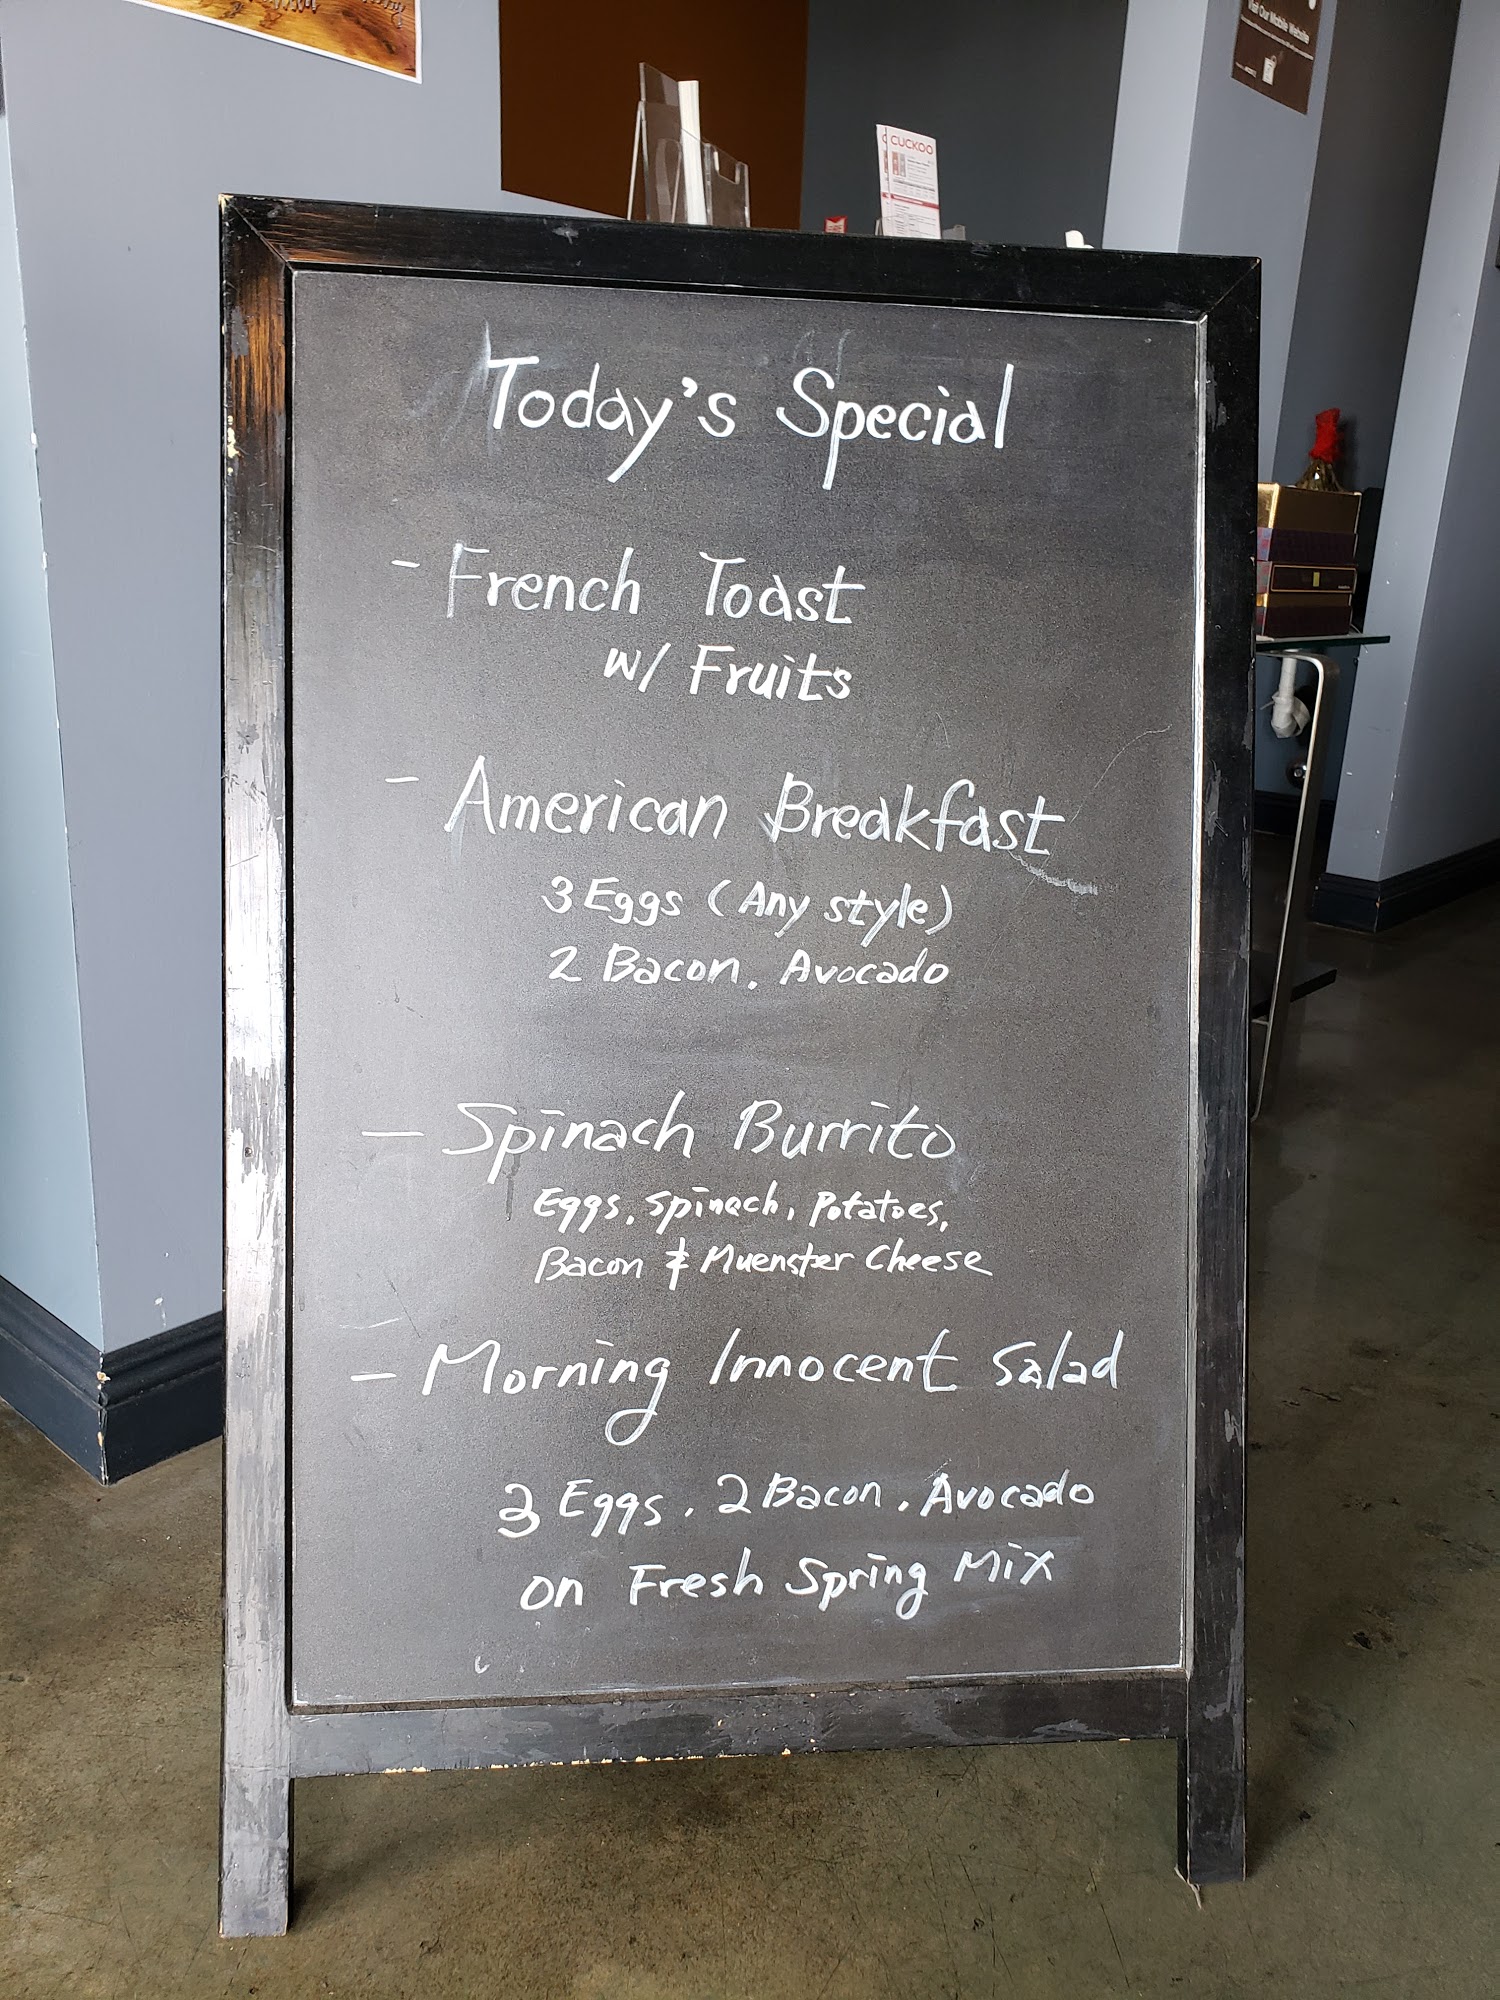 Visit Our Mobile Website
CUCKOO
Today's Special
- French Toast
w/ Fruits
- American Breakfast
3 Eggs (Any style)
2 Bacon, Avocado
- Spinach Burrito
Eggs, Spinach, Potatoes,
Bacon & Muenster Cheese
- Morning Innocent Salad
3 Eggs, 2 Bacon, Avocado
on Fresh Spring Mix